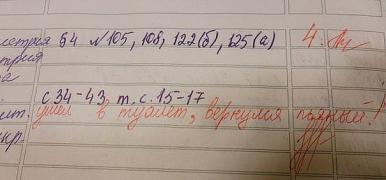 метрия §4 №105, 108, 122(б), 125(а) 4.
трия
а
с 34-43, т. с. 15-17
ит. ушел в туалет, вернулся пьяный!
кр.